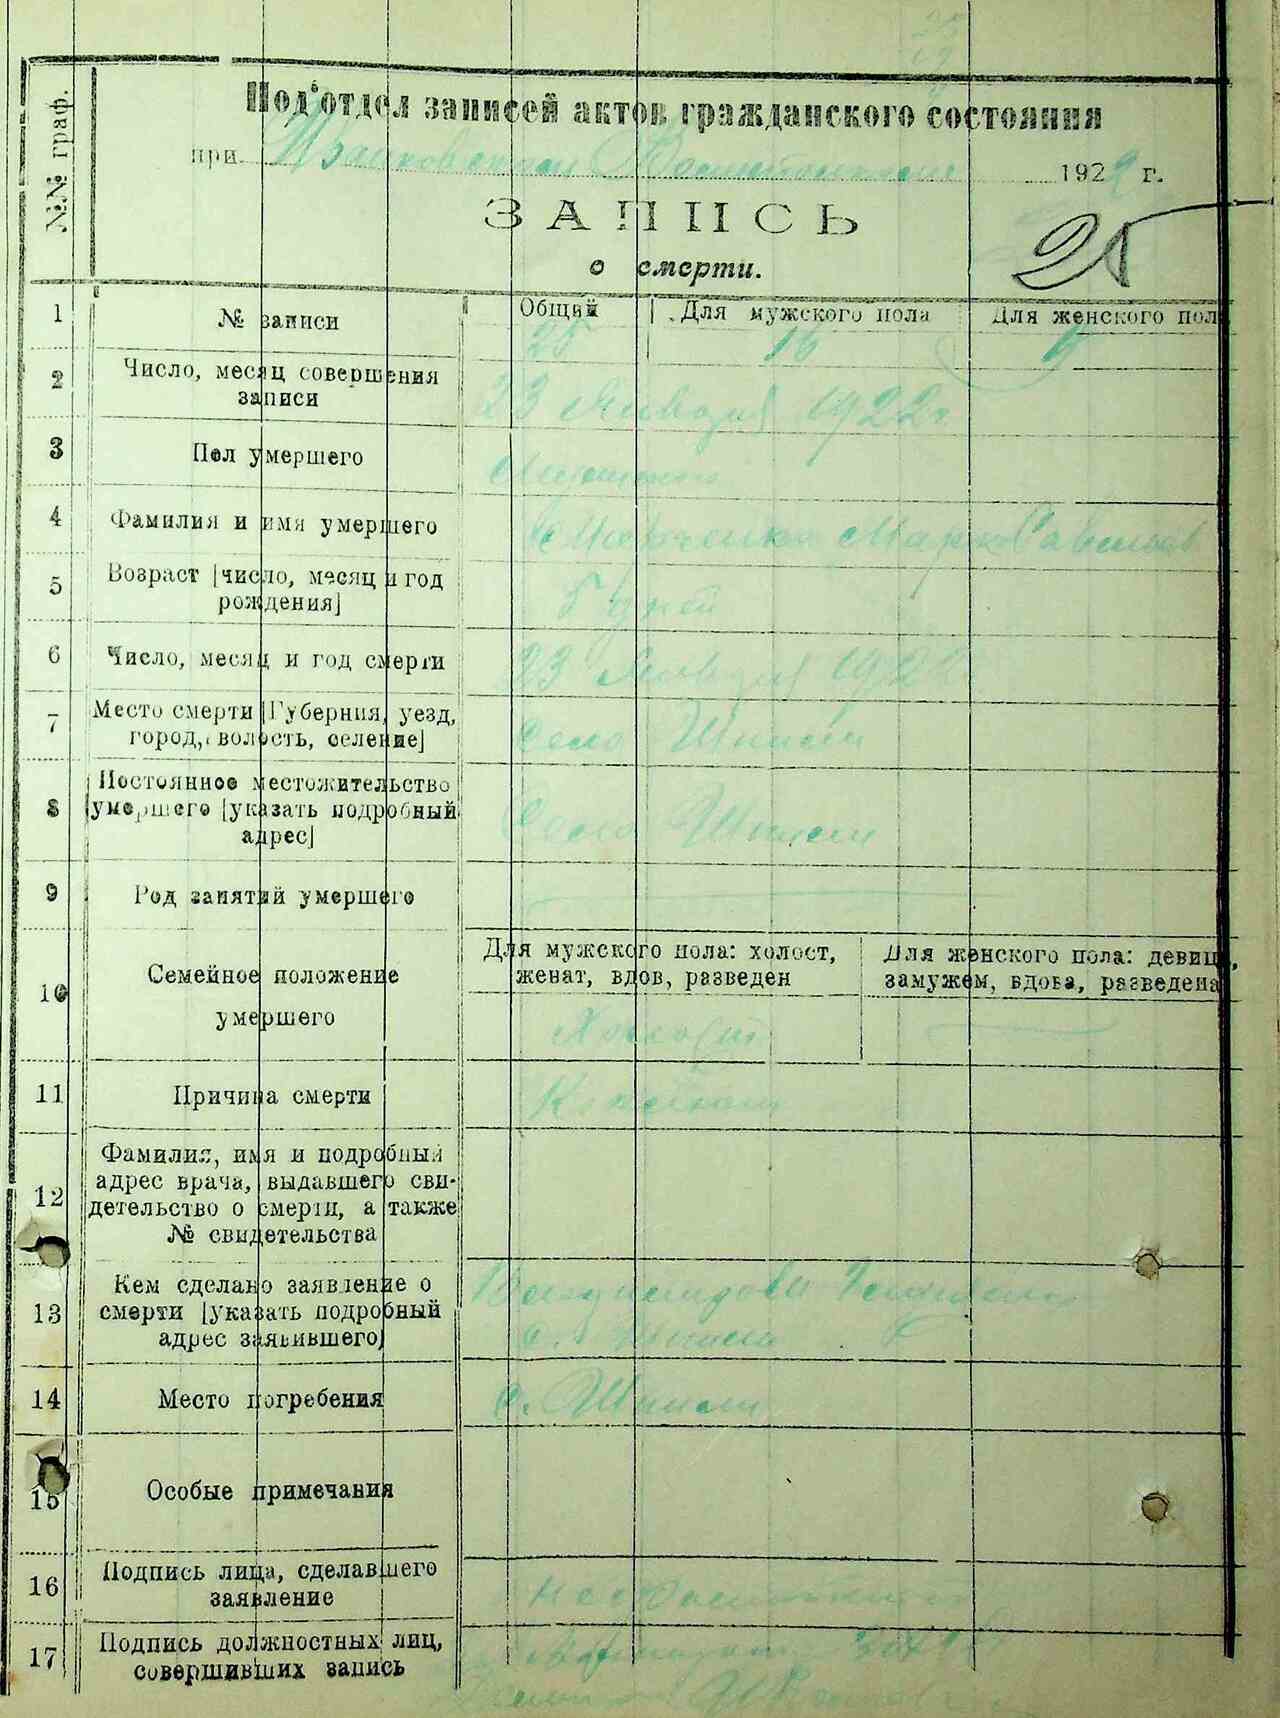 №№ граф.
Под'отдел записей актов гражданского состояния
при 1922 г.
ЗАПИСЬ
о смерти.
25
1 № записи Общий Для мужского пола Для женского пол
25 16 9
2 Число, месяц совершения записи
23 Января 1922 г
3 Пол умершего
4 Фамилия и имя умершего
Марк
5 Возраст [число, месяц и год рождения]
5 дней
6 Число, месяц и год смерти
23 Января 1922
7 Место смерти [Губерния, уезд, город, волость, селение]
Село Шписи
8 Постоянное местожительство умершего [указать подробный адрес]
Село Шписи
9 Род занятий умершего
10 Семейное положение умершего
Для мужского пола: холост, женат, вдов, разведен
Для женского пола: девица, замужем, вдова, разведена
Холост
11 Причина смерти
12 Фамилия, имя и подробный адрес врача, выдавшего свидетельство о смерти, а также № свидетельства
13 Кем сделано заявление о смерти [указать подробный адрес заявившего]
с. Шписи
14 Место погребения
с. Шписи
15 Особые примечания
16 Подпись лица, сделавшего заявление
17 Подпись должностных лиц, совершивших запись